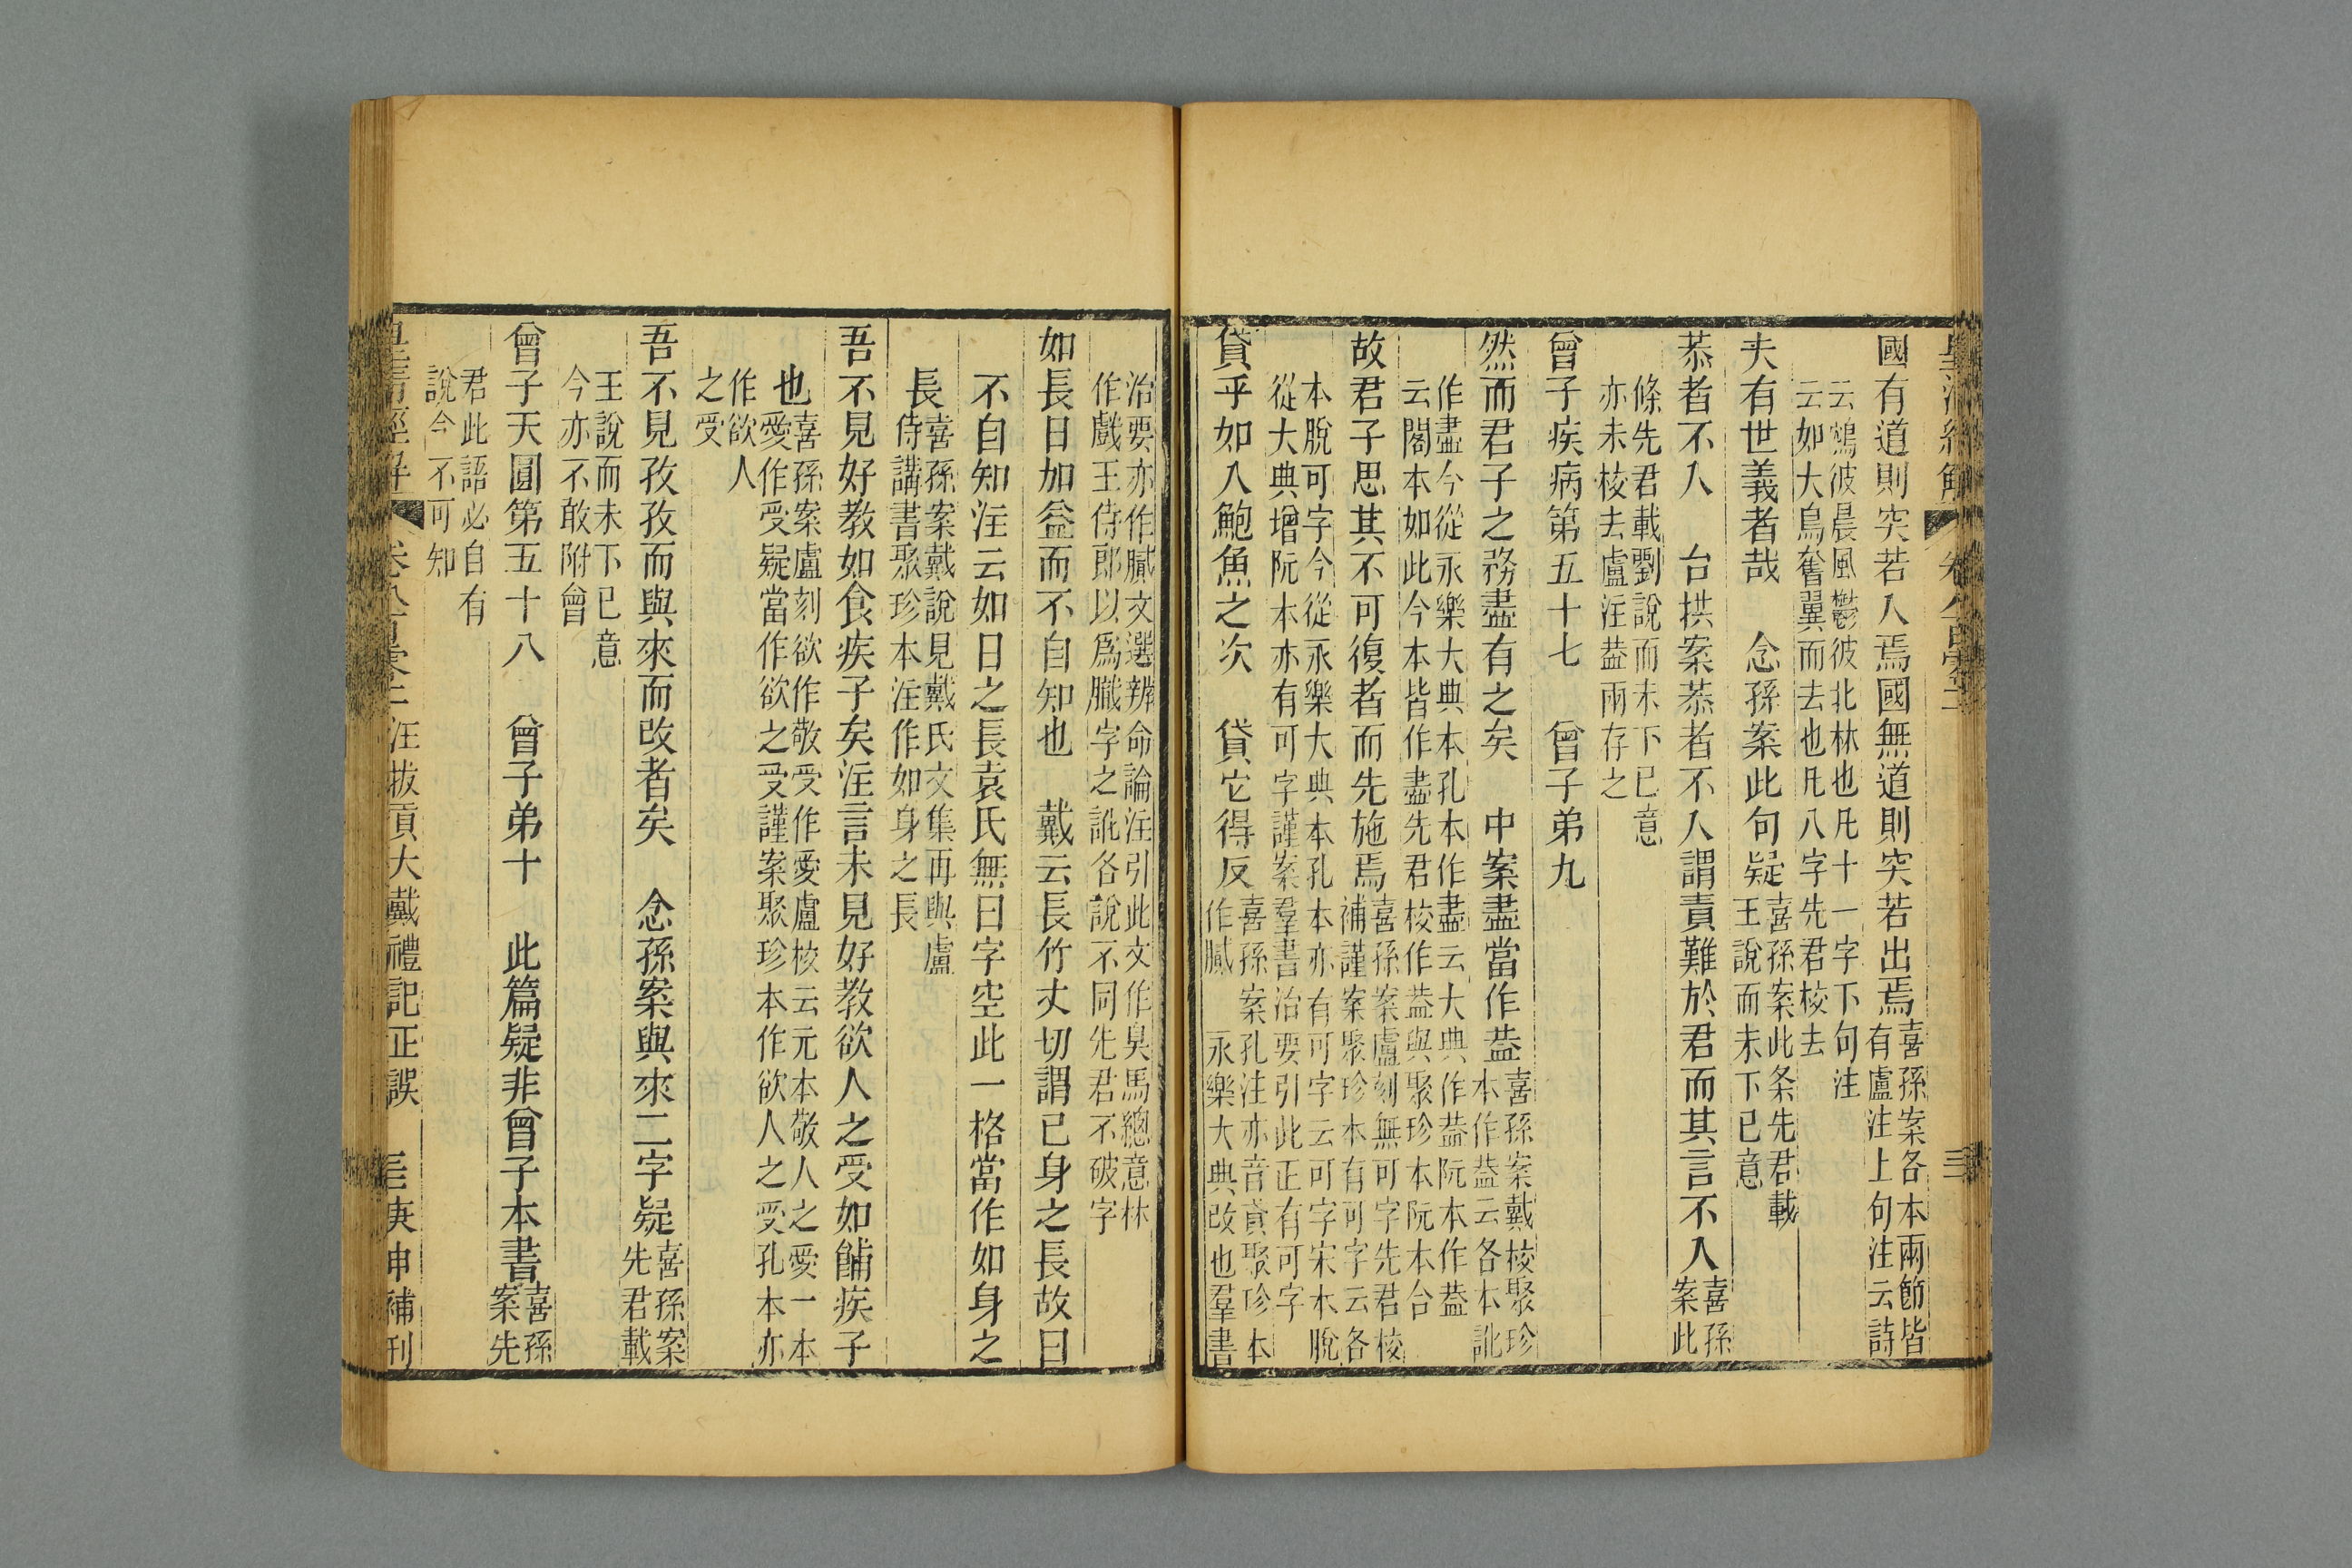 國有道則突若入焉國無道則突若出焉喜孫案各本兩節皆有盧注上句注云詩
云鴥彼晨風鬱彼北林也凡十一字下句注云如大鳥奮翼而去也凡八字先君校去
夫有世義者哉　念孫案此句疑喜孫案此条先君載王說而未下己意
恭者不入　台拱案恭者不入謂責難於君而其言不入喜孫案此
條先君載劉說而未下己意亦未校去盧注葢兩存之
曾子疾病第五十七　曾子弟九
然而君子之務盡有之矣　中案盡當作葢喜孫案戴校聚珍本作葢云各本訛
作盡今從永樂大典本孔本作盡云大典作葢阮本作葢云閣本如此今本皆作盡先君校作葢與聚珍本阮本合
故君子思其不可復者而先施焉喜孫案盧刻無可字先君校補謹案聚珍本有可字云各
本脫可字今從永樂大典本孔本亦有可字云可字宋本脫從大典增阮本亦有可字謹案羣書治要引此正有可字
貸乎如入鮑魚之次　貸它得反喜孫案孔注亦音貣聚珍本作膩　永樂大典改也羣書
治要亦作膩文選辨命論注引此文作臭馬總意林作戲王侍郎以爲膱字之訛各說不同先君不破字
如長日加益而不自知也　戴云長竹丈切謂己身之長故曰
不自知注云如日之長袁氏無曰字空此一格當作如身之
長喜孫案戴說見戴氏文集再與盧侍講書聚珍本注作如身之長
吾不見好教如食疾子矣注言未見好教欲人之受如餔疾子
也喜孫案盧刻欲作敬受作愛盧校云元本敬人之愛一本愛作受疑當作欲之受謹案聚珍本作欲人之受孔本亦
作欲人之受
吾不見孜孜而與來而改者矣　念孫案與來二字疑喜孫案先君載
王說而未下己意今亦不敢附會
曾子天圓第五十八　曾子弟十　此篇疑非曾子本書喜孫案先
君此語必自有說今不可知
汪拔貢大戴禮記正誤　庚申補刊